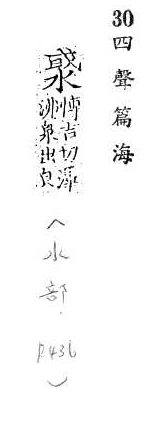 30四聲篇海
愽吉切滭
沸泉出皃
（水部．P.436）